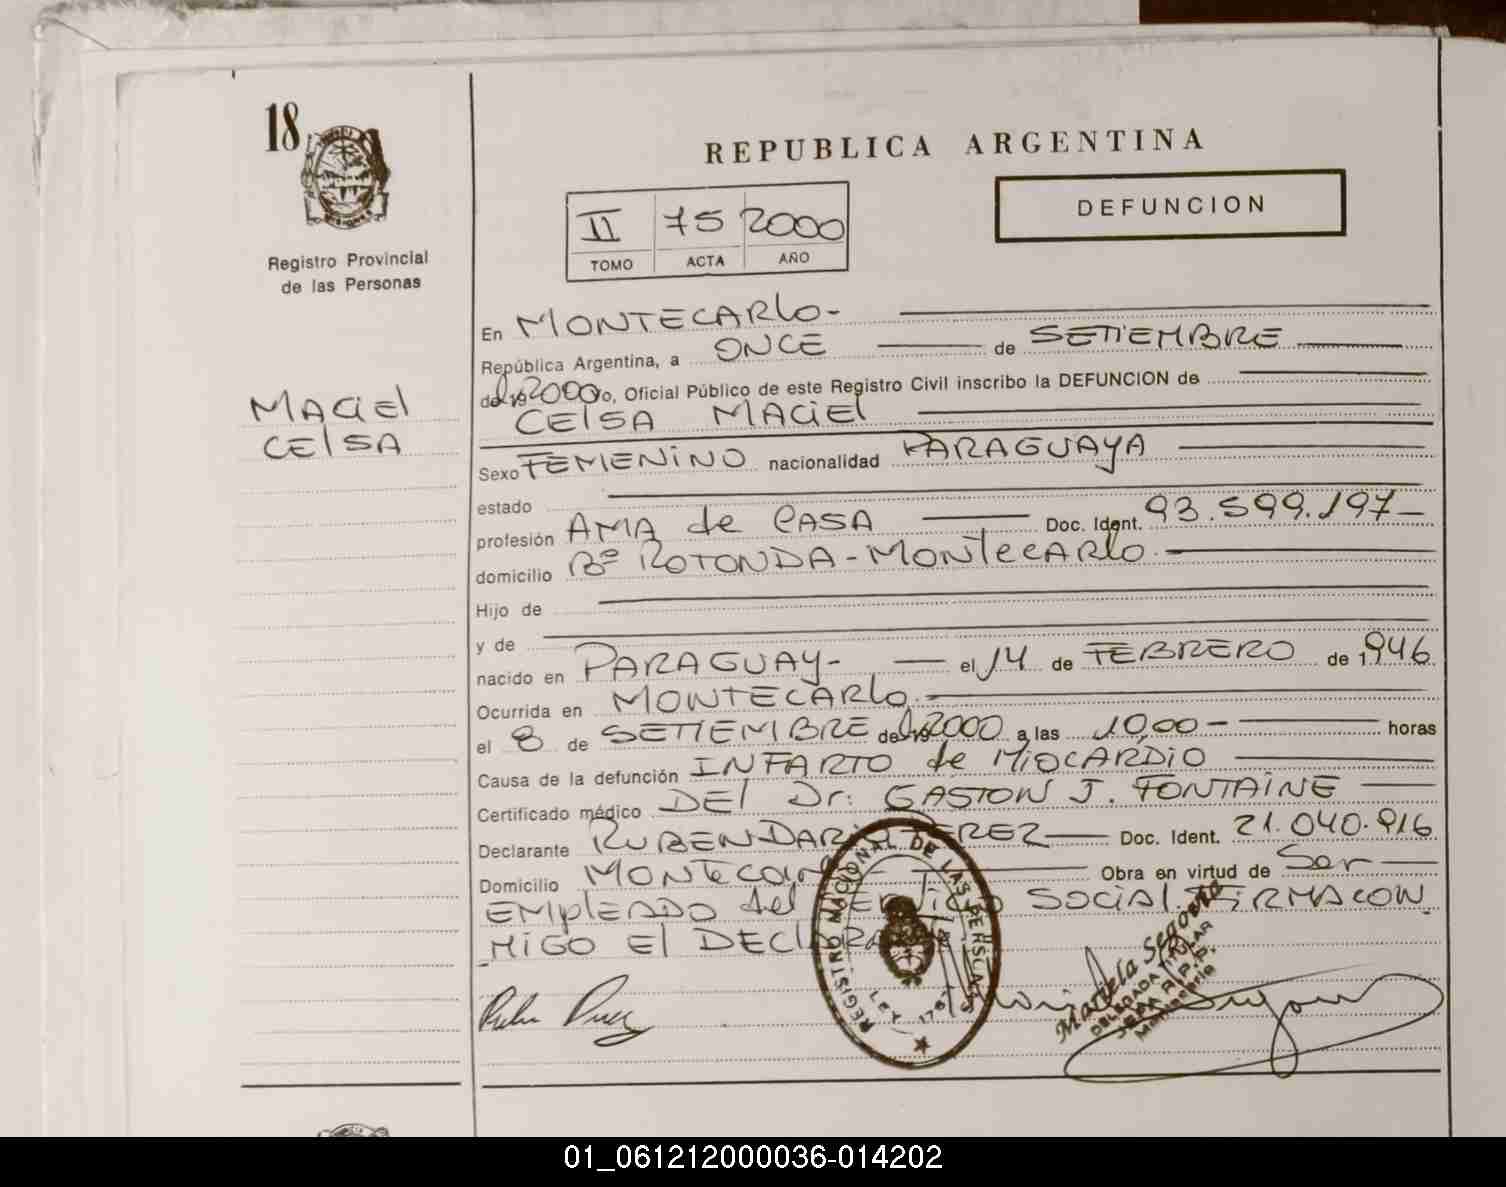 18
Registro Provincial
de las Personas
MACIEL
CELSA
REPUBLICA ARGENTINA
DEFUNCION
II 75 2000
TOMO ACTA AÑO
En MONTECARLO-
República Argentina, a ONCE de SETIEMBRE
del 2000 o, Oficial Público de este Registro Civil inscribo la DEFUNCION de
CELSA MACIEL
Sexo FEMENINO nacionalidad PARAGUAYA
estado
profesión AMA de CASA Doc. Ident. 93.599.197-
domicilio Bº ROTONDA-MONTECARLO.-
Hijo de
y de
nacido en PARAGUAY- el 14 de FEBRERO de 1.946
Ocurrida en MONTECARLO.-
el 8 de SETIEMBRE del 2000 a las 10,00- horas
Causa de la defunción INFARTO de MIOCARDIO
Certificado médico DEL Dr: GASTON J. FONTAINE
Declarante RUBEN DARIO PEREZ Doc. Ident. 21.040.916
Domicilio MONTECARLO- Obra en virtud de Ser
EMPLEADO del SERVICIO SOCIAL. FIRMA CON
MIGO EL DECLARANTE
REGISTRO NACIONAL DE LAS PERSONAS
LEY
Mariela Segovia
DELEGADA TITULAR
R.P.P.
Montecarlo
01_061212000036-014202